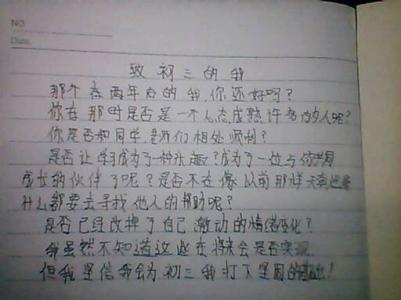 NO
Date.
致初三的我
那个在两年后的我,你还好吗?
你在那时是否是一个心态成熟许多的人呢?
你是否和同学、老师们相处顺利?
是否让学习成为了一种兴趣?成为了一位与你共同
成长的伙伴了呢?是否不在像以前那样天真
什么都要去寻找他人的帮助呢?
是否已经改掉了自己激动的情绪变化?
我虽然不知道这些在将来会是否实现
但我坚信我会为初三我打下坚固的基础!